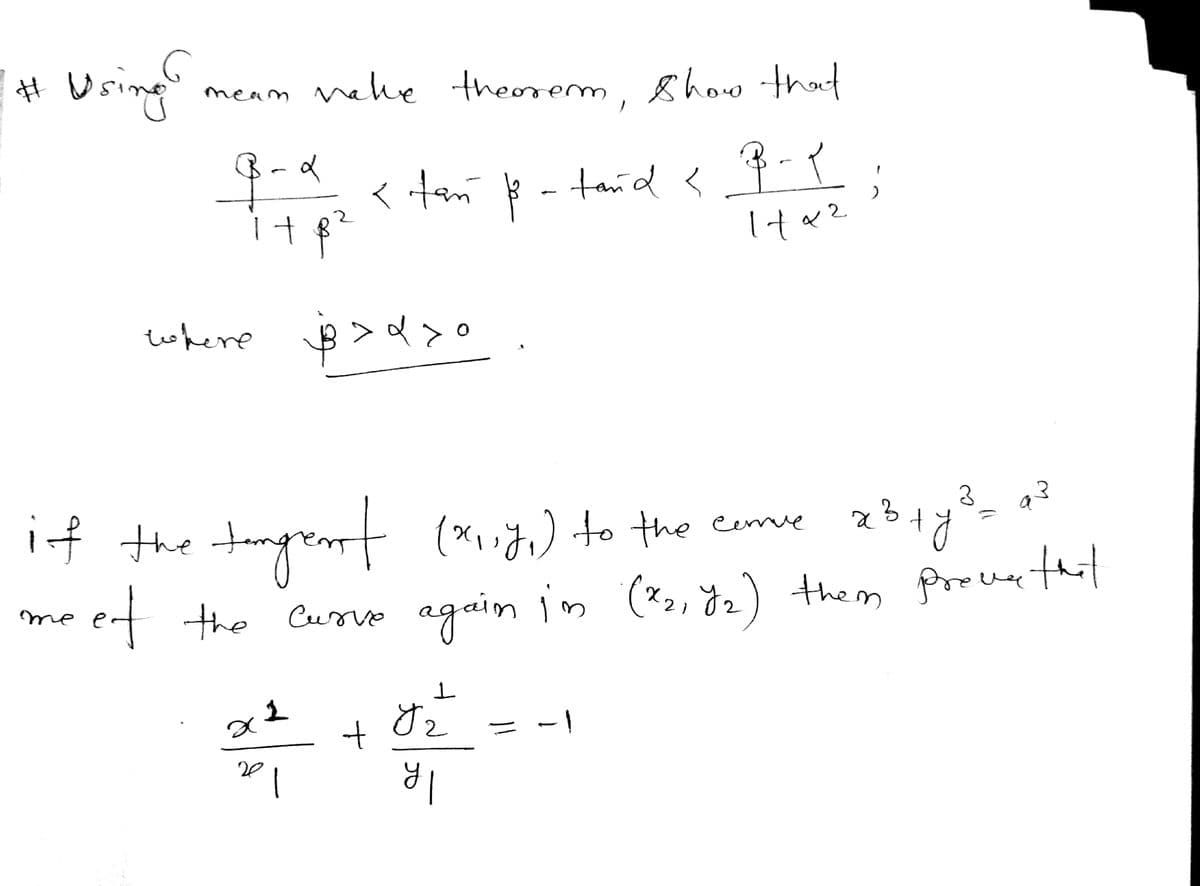 # Using mean value theorem, show that
β-α / 1+β² < tan⁻ β - tan⁻ α < β-α / 1+α² ;
where β>α>0 .
if the tangent (x₁,y₁) to the curve x³+y³=a³
meet the curve again in (x₂, y₂) then prove that
x₂ / x₁ + y₂ / y₁ = -1